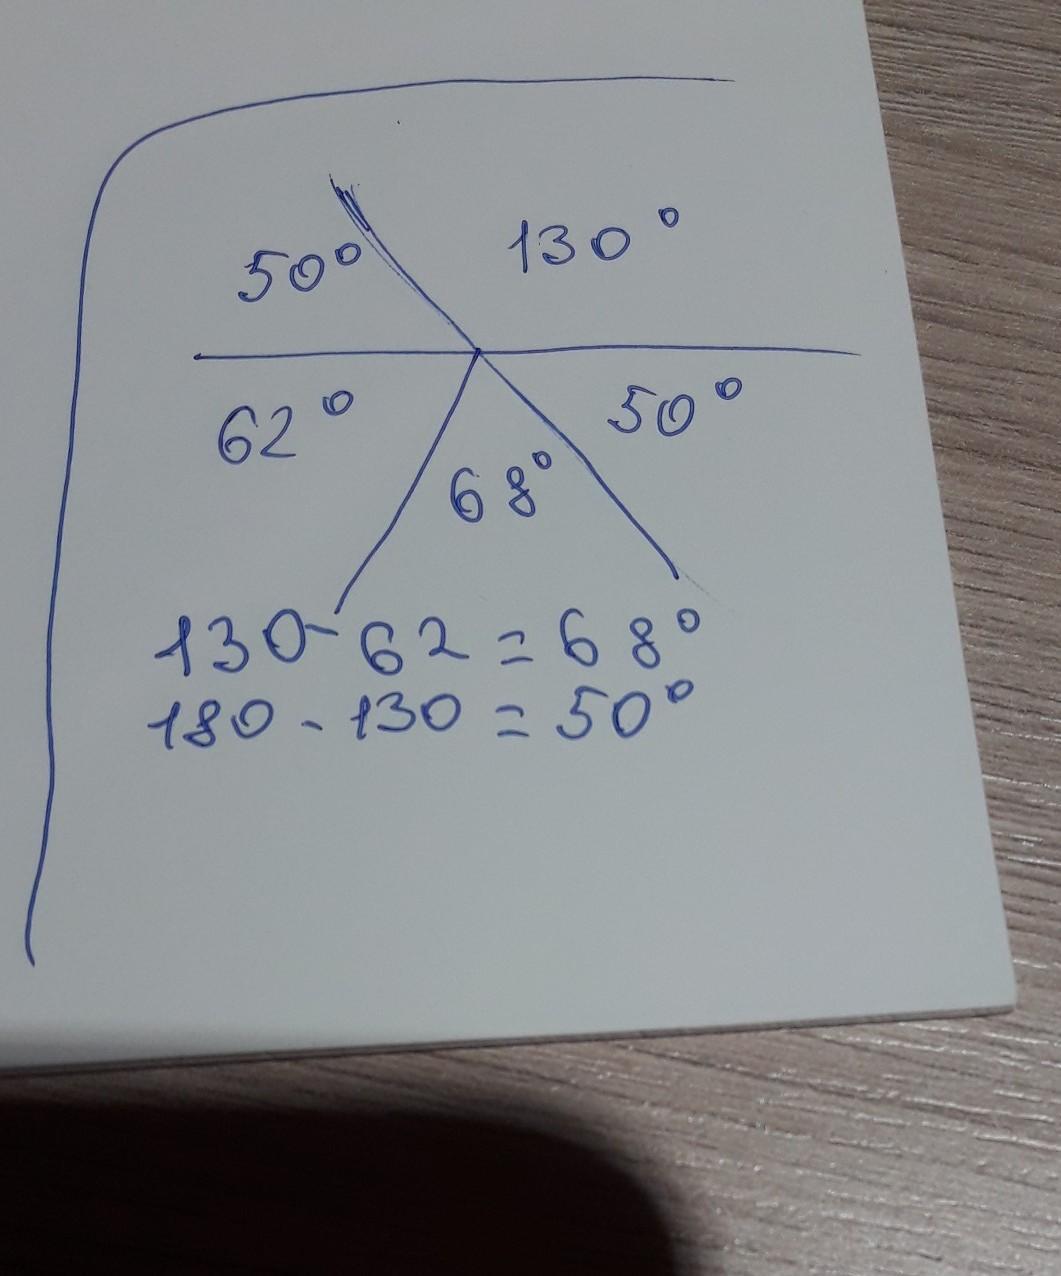 50° 130°
62° 50°
68°
130-62=68°
180-130=50°